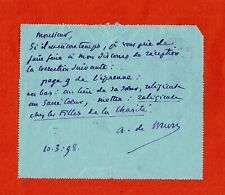 Monsieur,
S'il en est encore temps, je vous prie de
faire faire à mon discours de réception
la correction suivante :
page 9 de l'épreuve :
en bas : au lieu de sa sœur, religieuse
au Sacré Cœur, mettre : religieuse
chez les Filles de la Charité.
A. de Mun
10.3.98.